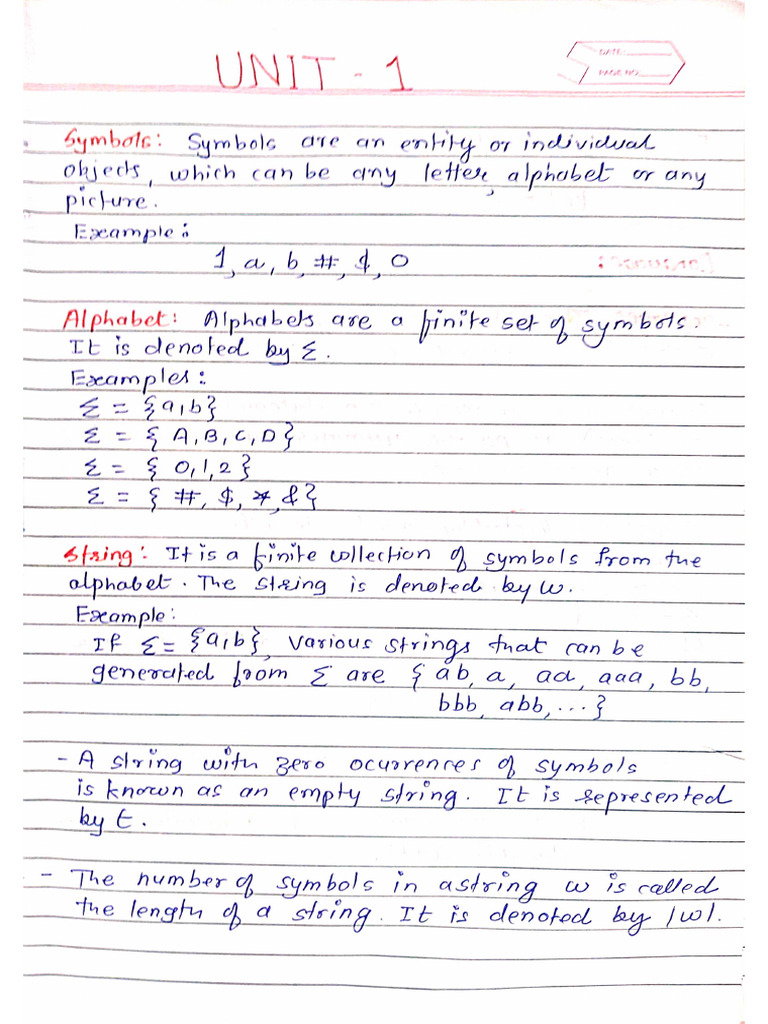 UNIT - 1
DATE:
PAGE NO.
Symbols: Symbols are an entity or individual
objects, which can be any letter, alphabet or any
picture.
Example:
1, a, b, #, $, 0
Alphabet: Alphabets are a finite set of symbols.
It is denoted by Σ.
Examples:
Σ = {a,b}
Σ = {A,B,C,D}
Σ = {0,1,2}
Σ = {#, $, *, &}
String: It is a finite collection of symbols from the
alphabet. The string is denoted by w.
Example:
If Σ = {a,b}, various strings that can be
generated from Σ are {ab, a, aa, aaa, bb,
bbb, abb, ...}
- A string with zero ocurrences of symbols
is known as an empty string. It is represented
by ε.
- The number of symbols in a string w is called
the length of a string. It is denoted by |w|.